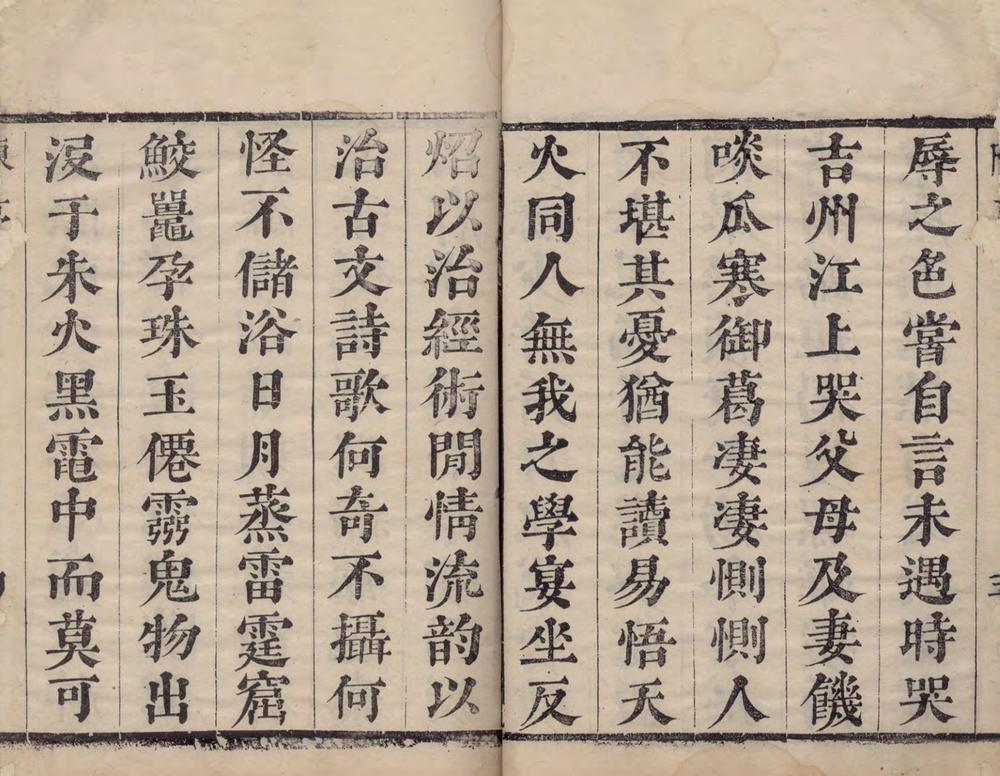 辱之色嘗自言未遇時哭
吉州江上哭父母及妻饑
啖瓜寒御葛凄凄惻惻人
不堪其憂猶能讀易悟天
火同人無我之學宴坐反
炤以治經術閒情流韵以
治古文詩歌何奇不攝何
怪不儲浴日月蒸雷霆窟
鮫鼍孕珠玉僊靈鬼物出
没于朱火黑電中而莫可